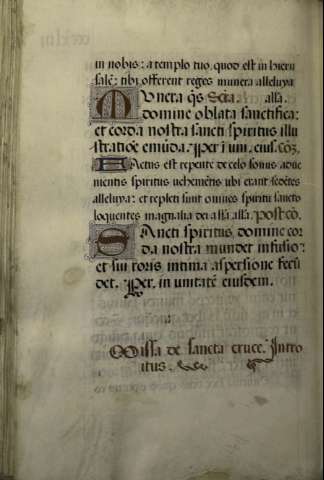 in nobis: a templo tuo, quod est in hieru
salē: tibi offerent reges munera alleluya
Munera q̄s Scīa. alla.
domine oblata sanctifica:
et corda nostra sancti spiritus illu
stratiōe emūda. Per. in uni. eius. Cō.
Factus est repente de celo sonus adue
nientis spiritus uehemētis ubi erant sedētes
alleluya: et repleti sunt omnes spiritu sancto
loquentes magnalia dei alla alla. Postcō.
Sancti spiritus, domine cor
da nostra mundet infusio:
et sui roris intima aspersione fecū
det. Per. in unitate eiusdem.
Missa de sancta cruce. Intro
itus.